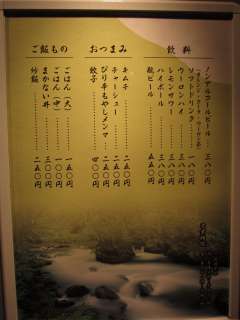 飲料
ノンアルコールビール……三八〇円
ソフトドリンク……一八〇円
ウーロンハイ……三八〇円
レモンサワー……三八〇円
ハイボール……三八〇円
瓶ビール……五五〇円
おつまみ
キムチ……二五〇円
チャーシュー……二五〇円
ぴり辛もやしメンマ……二五〇円
餃子……四〇〇円
ご飯もの
ごはん（大）……一五〇円
ごはん（中）……一〇〇円
まかない丼……三〇〇円
炒飯……二五〇円